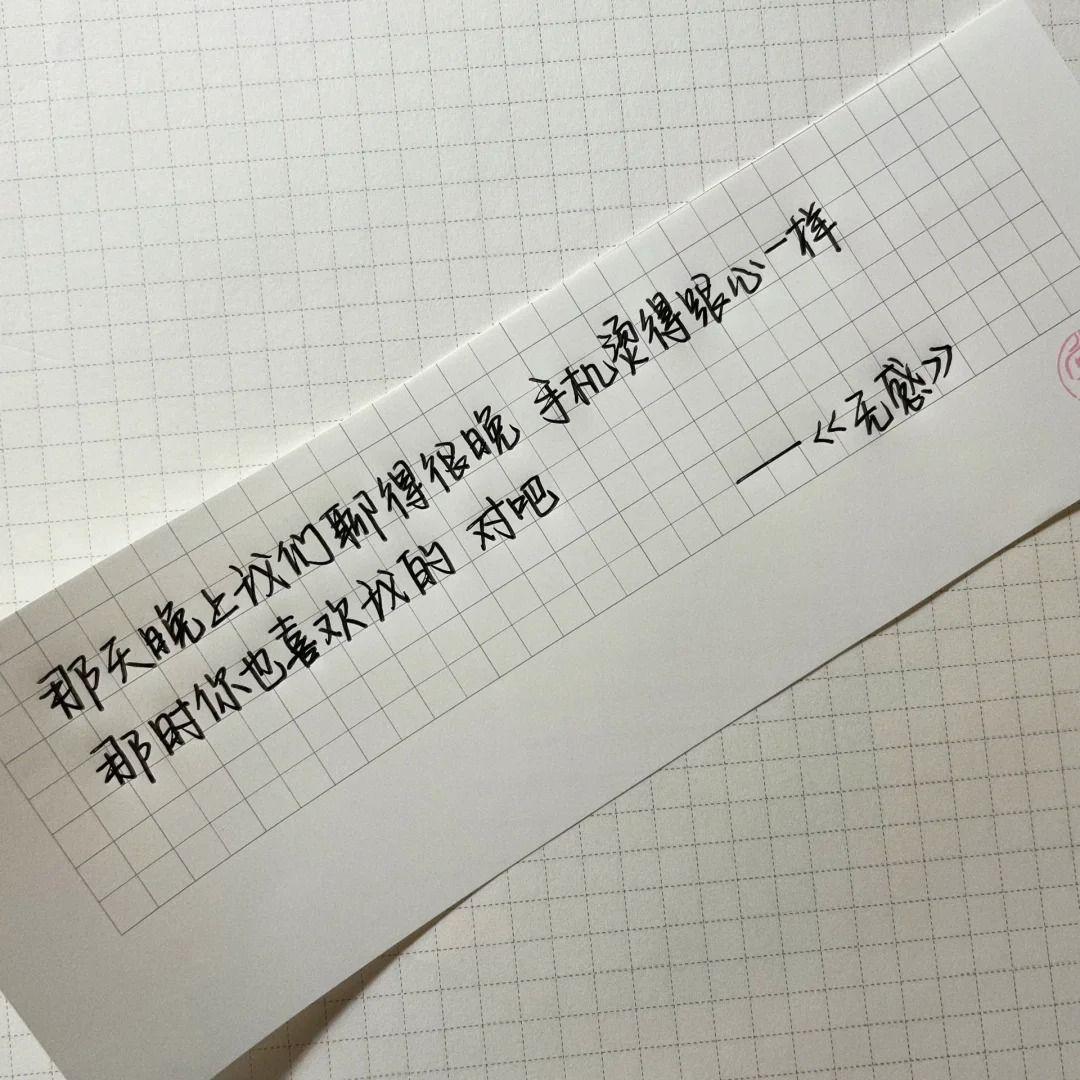 那天晚上我们聊得很晚 手机烫得跟心一样
那时你也喜欢我的 对吧
——《无感》